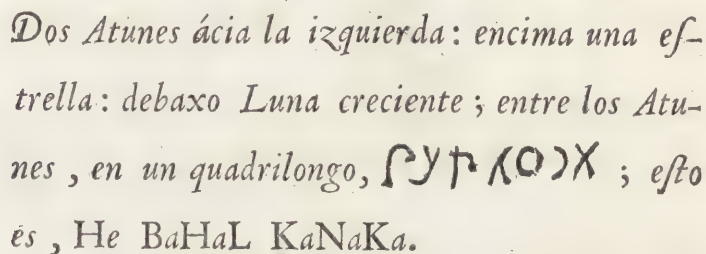 Dos Atunes ácia la izquierda: encima una eſ-
trella: debaxo Luna creciente; entre los Atu-
nes, en un quadrilongo, ; eſto
és, He BaHaL KaNaKa.